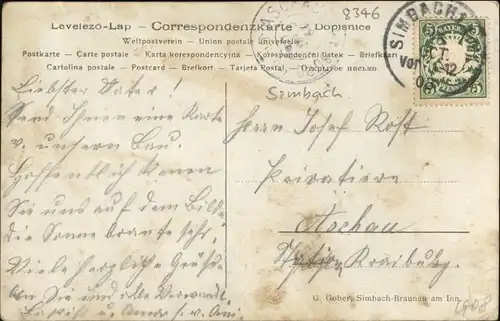 Levelező-Lap – Correspondenzkarte – Dopisnice
Weltpostverein – Union postale universelle
Postkarte – Carte postale – Karta korespondencyjna – Korespondenční listek – Briefkaart
Cartolina postale – Postcard – Brefkort – Tarjeta Postal – Открытое письмо
8346
SIMBACH
BAYERN
5 5
Simbach
Liebster Vater!
Send Ihnen eine Karte
v. unsern Bau.
Hoffentlich kenen
Sie uns auf dem Bilde
die Sonne brante sehr.
Viele herzliche Grüße
an Sie und alle Verwandte
Herrn Josef Röst
Privatiere
Aschau
Station Kraiburg.
G. Geber, Simbach-Braunau am Inn.
1908